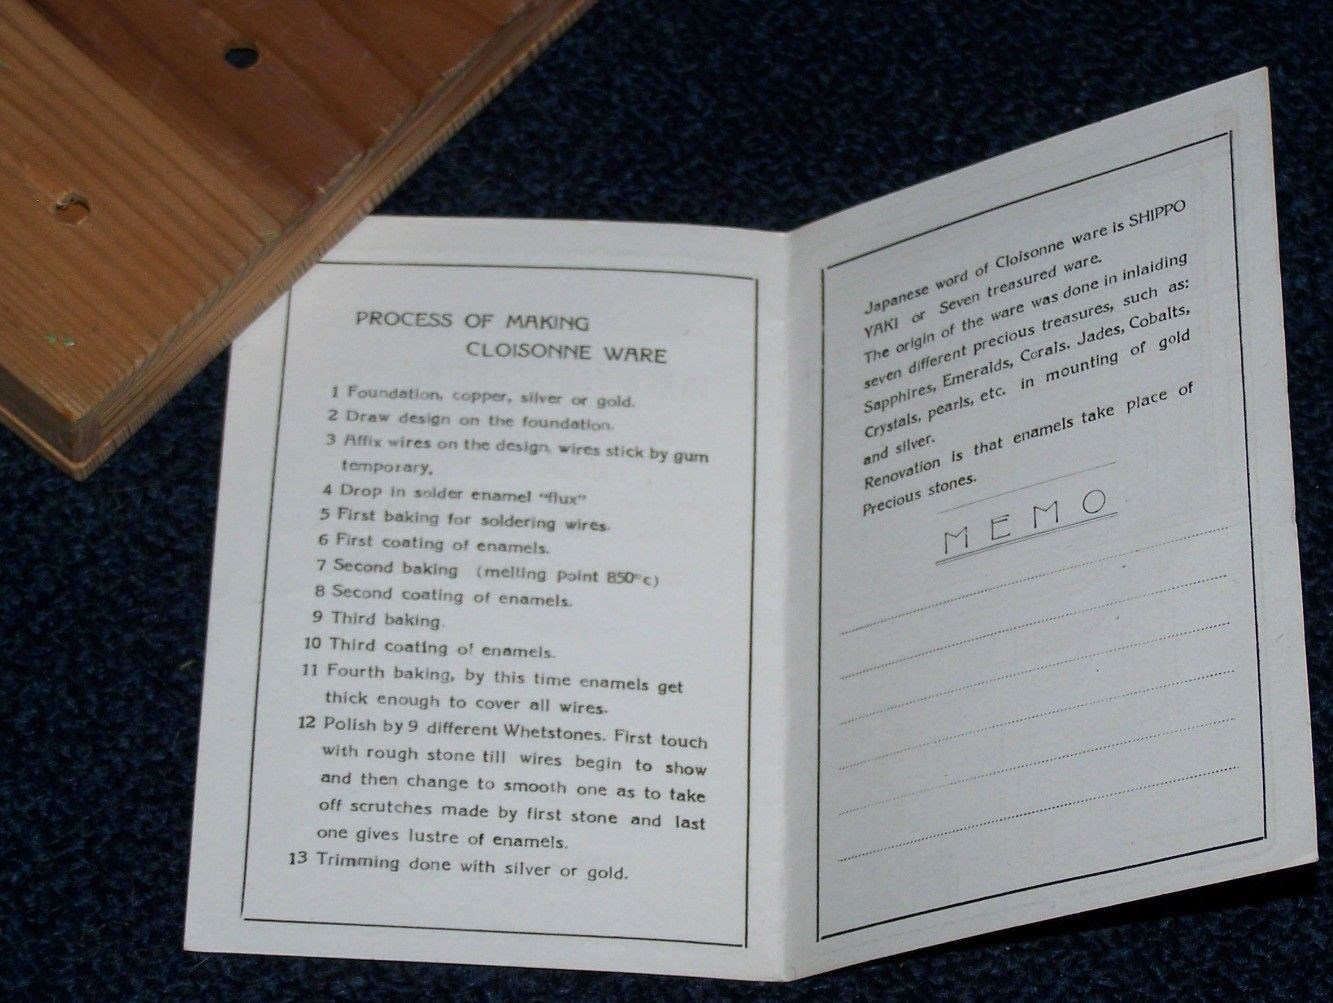 PROCESS OF MAKING
CLOISONNE WARE
1 Foundation, copper, silver or gold.
2 Draw design on the foundation.
3 Affix wires on the design, wires stick by gum
temporary.
4 Drop in solder enamel "flux"
5 First baking for soldering wires.
6 First coating of enamels.
7 Second baking (melting point 850°c)
8 Second coating of enamels.
9 Third baking.
10 Third coating of enamels.
11 Fourth baking, by this time enamels get
thick enough to cover all wires.
12 Polish by 9 different Whetstones. First touch
with rough stone till wires begin to show
and then change to smooth one as to take
off scrutches made by first stone and last
one gives lustre of enamels.
13 Trimming done with silver or gold.
Japanese word of Cloisonne ware is SHIPPO
YAKI or Seven treasured ware.
The origin of the ware was done in inlaiding
seven different precious treasures, such as:
Sapphires, Emeralds, Corals. Jades, Cobalts,
Crystals, pearls, etc. in mounting of gold
and silver.
Renovation is that enamels take place of
Precious stones.
MEMO